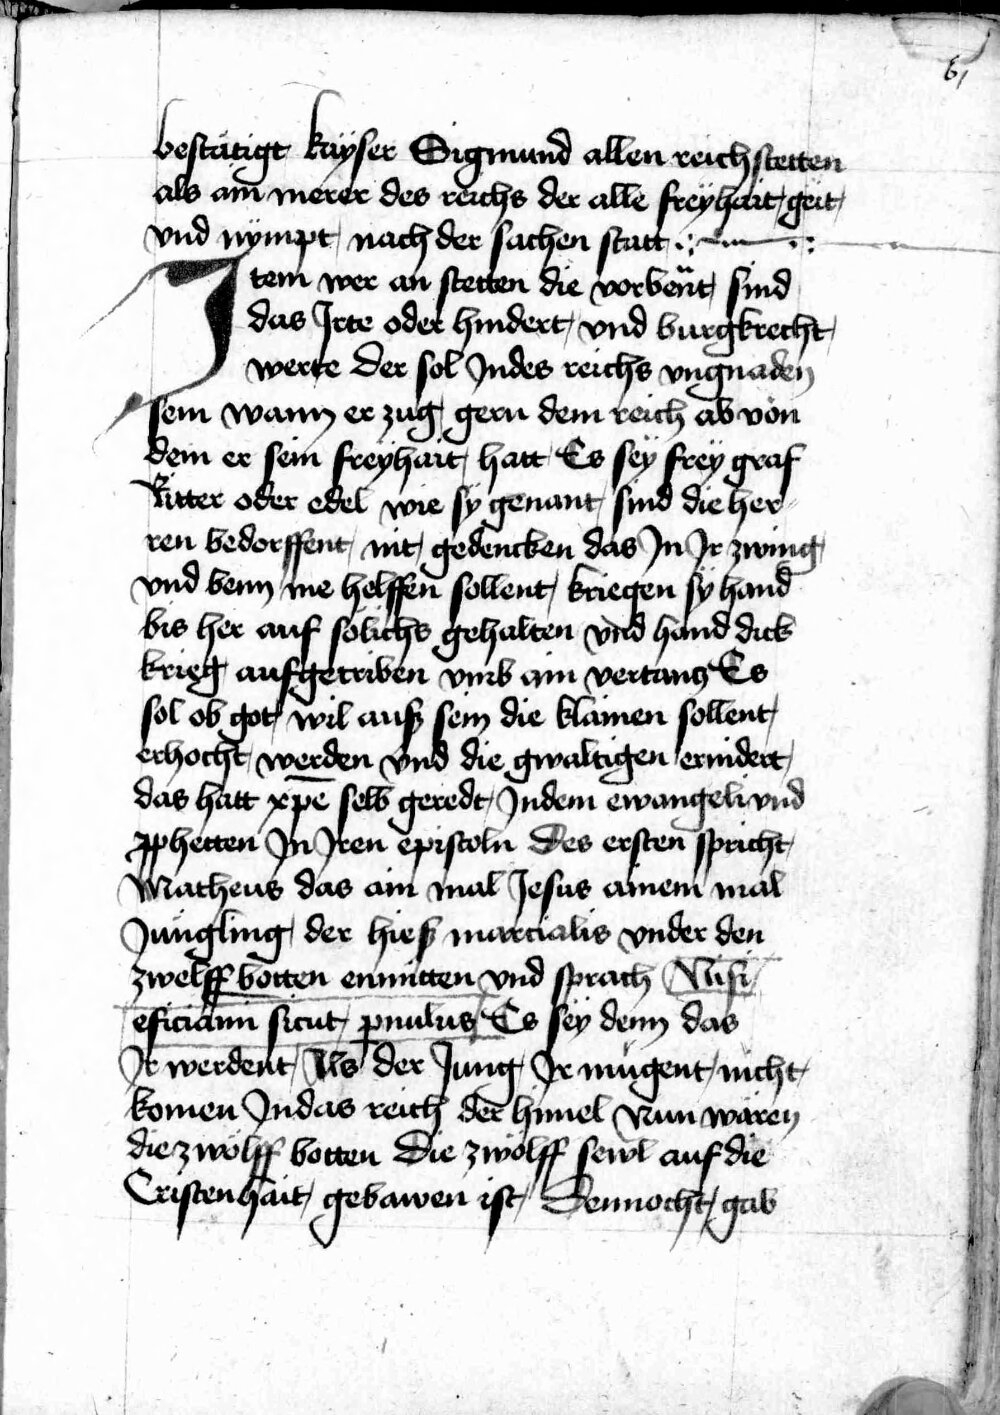 61
bestätigt kayser Sigmund allen reichstetten
als ain merer des reichs der alle freyhait geit
vnd nympt nach der sachen statt
Item wer an stetten die vorbent sind
das Irte oder hindert vnd burgkrecht
werte der sol Indes reichs vngnaden
sein wann er zug gern dem reich ab von
dem er sein freyhait hatt Es sey frey graf
Ritter oder edel wie sy genant sind die her-
ren bedorffent nit gedencken das In Ir zwing
vnd benn me helffen sollent kriegen sy hand
bis her auf sölichs gehalten vnd hand dick
krieg aufgetriben vmb ain vertanz Es
sol ob got wil auß sein die klainen sollent
erhocht werden vnd die gwaltigen ernidert
das hatt xpe selb geredt Indem ewangeli vnd
pphetten In Iren epistoln Des ersten spricht
Matheus das ain mal Jesus ainem mal
Jungling der hieß marcialis vnder den
zwelff botten enmitten vnd sprach Nisi
eficiami sicut pnulus Es sey denn das
Ir werdent Als der Jung Ir mugent nicht
komen Indas reich der himel Nun waren
die zwölff botten Die zwölff sewl auf die
Cristenhait gebawen ist Dennocht gab